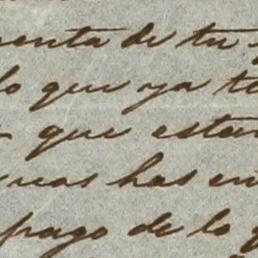 uenta de tu
lo que ya te
que estan
uas has en
pago de lo q